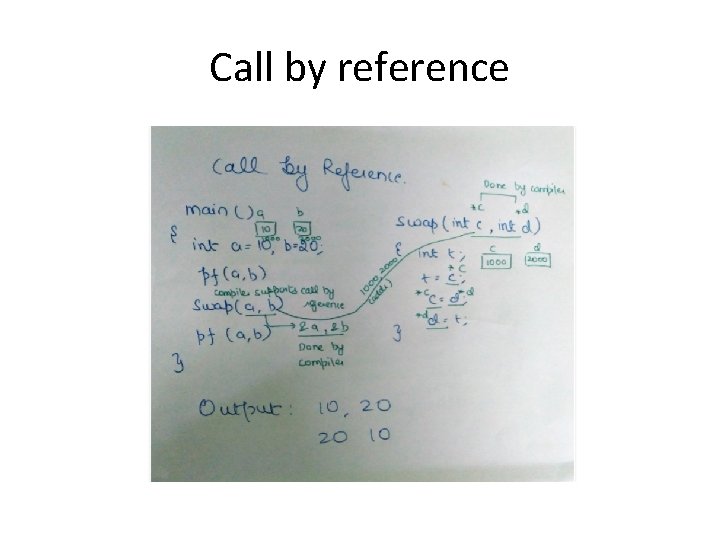 Call by reference
Call by Reference.
Done by compiler
*c *d
main() a b
10 20
1000 2000
swap(int c, int d)
{
int a=10, b=20;
{ int t;
c d
1000 2000
pf(a,b)
*c
t = c;
compiler supports call by reference
1000 2000
(addr)
swap(a, b)
*c *d
c = d;
pf (a,b) → &a, &b
*d
d = t;
Done by compiler
}
}
Output: 10, 20
20 10